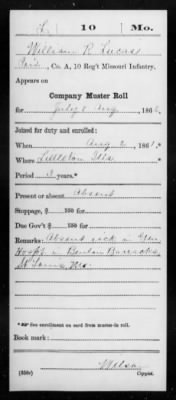 L | 10 | Mo.
William R. Lucas
Co. A, 10 Reg't Missouri Infantry.
Appears on
Company Muster Roll
for July & Aug, 186
Joined for duty and enrolled:
When Aug 2, 1861.*
Where Littleton Ills
Period 3 years.*
Present or absent Absent
Stoppage, $ 100 for
Due Gov't $ 100 for
Remarks: Absent sick in Gen
Hospt in Benton Barracks,
St Louis, Mo.
* See enrollment on card from muster-in roll.
Book mark:
(358c)
Copyist.